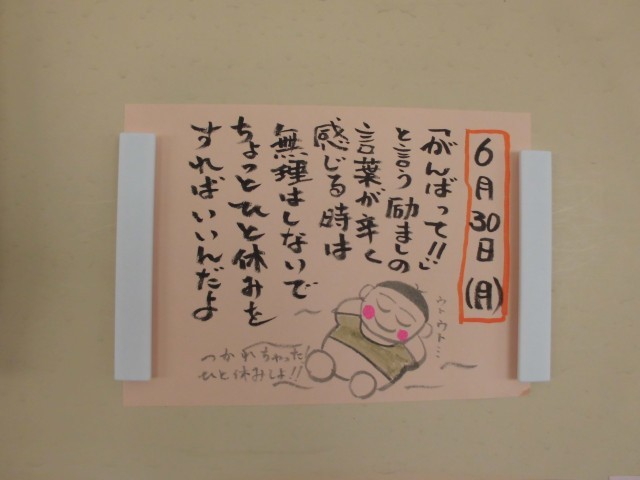 6月30日(月)
「がんばって!!」
と言う励ましの
言葉が辛く
感じる時は
無理はしないで
ちょっとひと休みを
すればいいんだよ
ウトウト…
つかれちゃった
ひと休みしよ!!